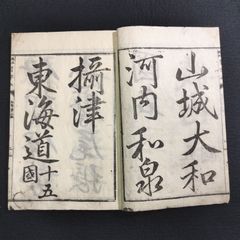 山城大和
河内和泉
攝津
東海道十五國